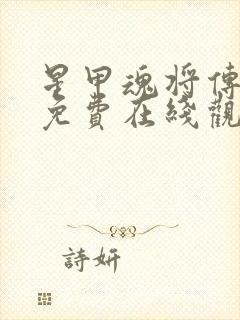 星甲魂将傳
免費在綫觀
詩妍